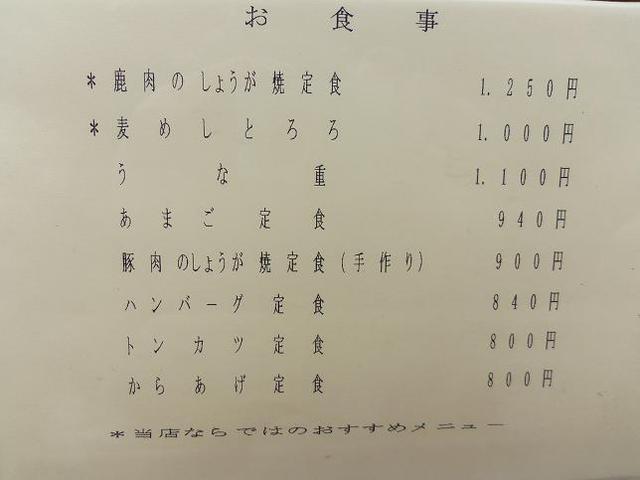 お食事
*鹿肉のしょうが焼定食 1.250円
*麦めしとろろ 1.000円
うな重 1.100円
あまご定食 940円
豚肉のしょうが焼定食(手作り) 900円
ハンバーグ定食 840円
トンカツ定食 800円
からあげ定食 800円
*当店ならではのおすすめメニュー